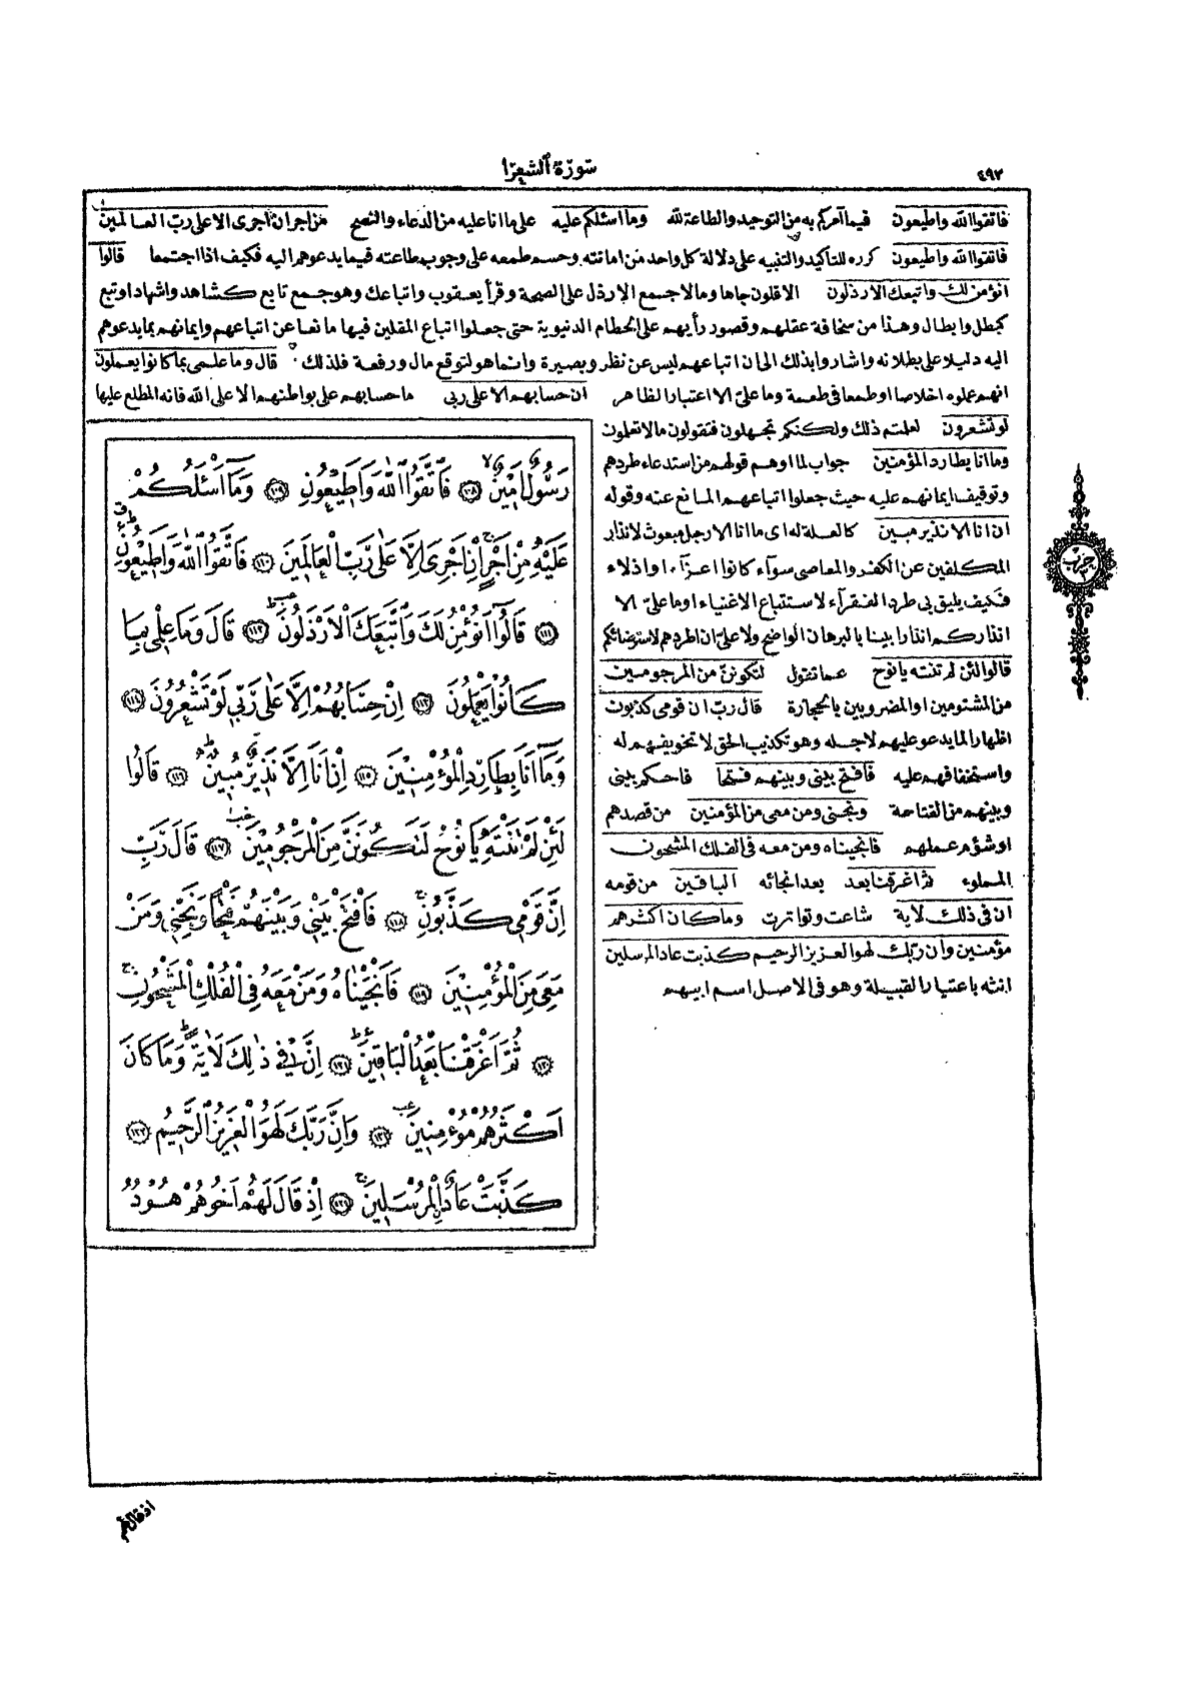 سورة الشعرا
٤٩٣
فاتقوا الله واطيعون فيما آمركم به من التوحيد والطاعة لله وما اسئلكم عليه على ما انا عليه من الدعاء والنصح من اجر ان اجرى الا على رب العالمين
فاتقوا الله واطيعون كرره للتاكيد والتنبيه على دلالة كل واحد من امانته وحسم طمعه على وجوب طاعته فيما يدعوهم اليه فكيف اذا اجتمعا قالوا
انؤمن لك واتبعك الارذلون الاقلون جاها ومالا جمع الارذل على الصحة وقرأ يعقوب واتباعك وهو جمع تابع كشاهد واشهاد او تبع
كبطل وابطال وهذا من سخافة عقلهم وقصور رأيهم على الحطام الدنيوية حتى جعلوا اتباع المقلين فيها مانعا عن اتباعهم وايمانهم بما يدعوهم
اليه دليلا على بطلانه واشاروا بذلك الى ان اتباعهم ليس عن نظر وبصيرة وانما هو لتوقع مال ورفعة فلذلك قال وما علمى بما كانوا يعملون
انهم عملوه اخلاصا او طمعا فى طعمة وما علىّ الا اعتبار الظاهر ان حسابهم الا على ربى ما حسابهم على بواطنهم الا على الله فانه المطلع عليها
لو تشعرون لعلمتم ذلك ولكنكم تجهلون فتقولون مالا تعلمون
وما انا بطارد المؤمنين جواب لما اوهم قولهم من استدعاء طردهم
وتوقيف ايمانهم عليه حيث جعلوا اتباعهم المانع عنه وقوله
ان انا الا نذير مبين كالعلة له اى ما انا الا رجل مبعوث لانذار
المكلفين عن الكفر والمعاصى سوآء كانوا اعزآء او اذلاء
فكيف يليق بى طرد الفقرآء لاستتباع الاغنياء او ما علىّ الا
انذاركم انذارا بينا بالبرهان الواضح ولا علىّ ان اطردهم لاسترضائكم
قالوا لئن لم تنته يا نوح عما تقول لتكوننّ من المرجومين
من المشتومين او المضروبين بالحجارة قال ربّ ان قومى كذبون
اظهارا لما يدعو عليهم لاجله وهو تكذيب الحق لا تخويفهم له
واستخفافهم عليه فافتح بينى وبينهم فتحا فاحكم بينى
وبينهم من الفتاحة ونجنى ومن معى من المؤمنين من قصدهم
او شؤم عملهم فانجيناه ومن معه فى الفلك المشحون
المملوء ثم اغرقنا بعد بعد انجائه الباقين من قومه
ان فى ذلك لاية شاعت وتواترت وما كان اكثرهم
مؤمنين وان ربك لهو العزيز الرحيم كذبت عاد المرسلين
انثه باعتبار القبيلة وهو فى الاصل اسم ابيهم
رَسُولٌ اَمٖينٌ ١٠٨ فَاتَّقُوا اللّٰهَ وَاَطٖيعُونِ ١٠٩ وَمَٓا اَسْـَٔلُكُمْ
عَلَيْهِ مِنْ اَجْرٍ اِنْ اَجْرِىَ اِلَّا عَلٰى رَبِّ الْعَالَمٖينَ ١١٠ فَاتَّقُوا اللّٰهَ وَاَطٖيعُونِ
١١١ قَالُٓوا اَنُؤْمِنُ لَكَ وَاتَّبَعَكَ الْاَرْذَلُونَ ١١٢ قَالَ وَمَا عِلْمٖى بِمَا
كَانُوا يَعْمَلُونَ ١١٣ اِنْ حِسَابُهُمْ اِلَّا عَلٰى رَبّٖى لَوْ تَشْعُرُونَ ١١٤
وَمَٓا اَنَا بِطَارِدِ الْمُؤْمِنٖينَ ١١٥ اِنْ اَنَا اِلَّا نَذٖيرٌ مُبٖينٌ ١١٦ قَالُوا
لَئِنْ لَمْ تَنْتَهِ يَا نُوحُ لَتَكُونَنَّ مِنَ الْمَرْجُومٖينَ ١١٧ قَالَ رَبِّ
اِنَّ قَوْمٖى كَذَّبُونِ ١١٨ فَافْتَحْ بَيْنٖى وَبَيْنَهُمْ فَتْحًا وَنَجِّنٖى وَمَنْ
مَعِىَ مِنَ الْمُؤْمِنٖينَ ١١٩ فَاَنْجَيْنَاهُ وَمَنْ مَعَهُ فِى الْفُلْكِ الْمَشْحُونِ
١٢٠ ثُمَّ اَغْرَقْنَا بَعْدُ الْبَاقٖينَ ١٢١ اِنَّ فٖى ذٰلِكَ لَاٰيَةً وَمَا كَانَ
اَكْثَرُهُمْ مُؤْمِنٖينَ ١٢٢ وَاِنَّ رَبَّكَ لَهُوَ الْعَزٖيزُ الرَّحٖيمُ ١٢٣
كَذَّبَتْ عَادٌ الْمُرْسَلٖينَ ١٢٤ اِذْ قَالَ لَهُمْ اَخُوهُمْ هُودٌ
حزب
٣
اذ قال لهم